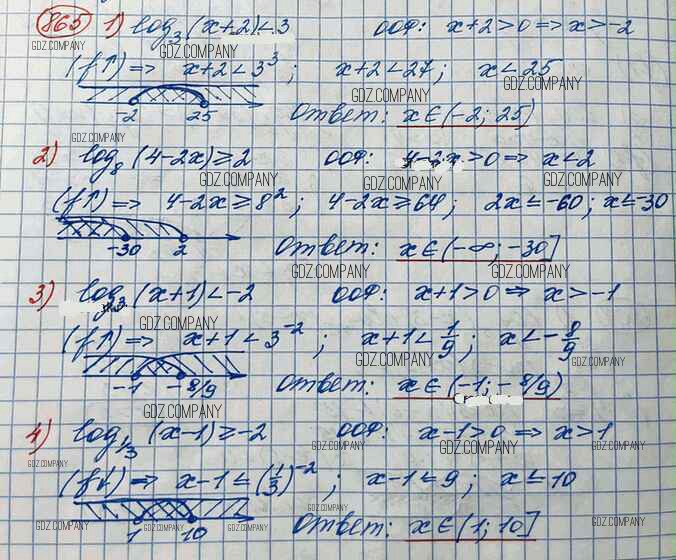 865 1) log₃(x+2)<3 ООФ: x+2>0 => x>-2
GDZ.COMPANY GDZ.COMPANY GDZ.COMPANY GDZ.COMPANY
(f↑) => x+2<3³; x+2<27; x<25
GDZ.COMPANY GDZ.COMPANY
-2 25 Ответ: x∈(-2; 25)
GDZ.COMPANY
2) log₈(4-2x)≥2 ООФ: 4-2x>0 => x<2
GDZ.COMPANY GDZ.COMPANY GDZ.COMPANY
(f↑) => 4-2x≥8²; 4-2x≥64; 2x≤-60; x≤-30
-30 2 Ответ: x∈(-∞; -30]
GDZ.COMPANY GDZ.COMPANY
3) log₃(x+1)<-2 ООФ: x+1>0 => x>-1
GDZ.COMPANY
(f↑) => x+1<3⁻²; x+1<1/9; x<-8/9
GDZ.COMPANY GDZ.COMPANY
-1 -8/9 Ответ: x∈(-1; -8/9)
GDZ.COMPANY
4) log₁/₃(x-1)≥-2 ООФ: x-1>0 => x>1
GDZ.COMPANY GDZ.COMPANY GDZ.COMPANY GDZ.COMPANY
(f↓) => x-1≤(1/3)⁻²; x-1≤9; x≤10
GDZ.COMPANY
1 10 Ответ: x∈(1; 10]
GDZ.COMPANY GDZ.COMPANY GDZ.COMPANY GDZ.COMPANY GDZ.COMPANY